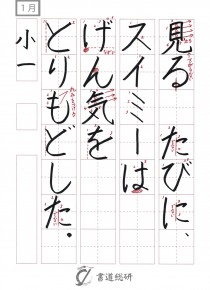 1月
見る たびに、
スイミーは
げん気を
とりもどした。
小一
書道総研